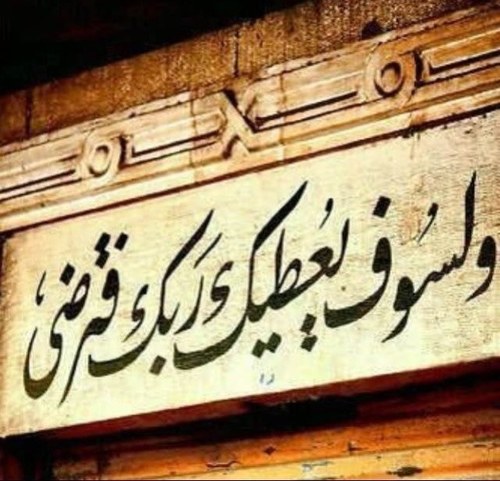 ولسوف يُعطيك رَبك فترضىٰ